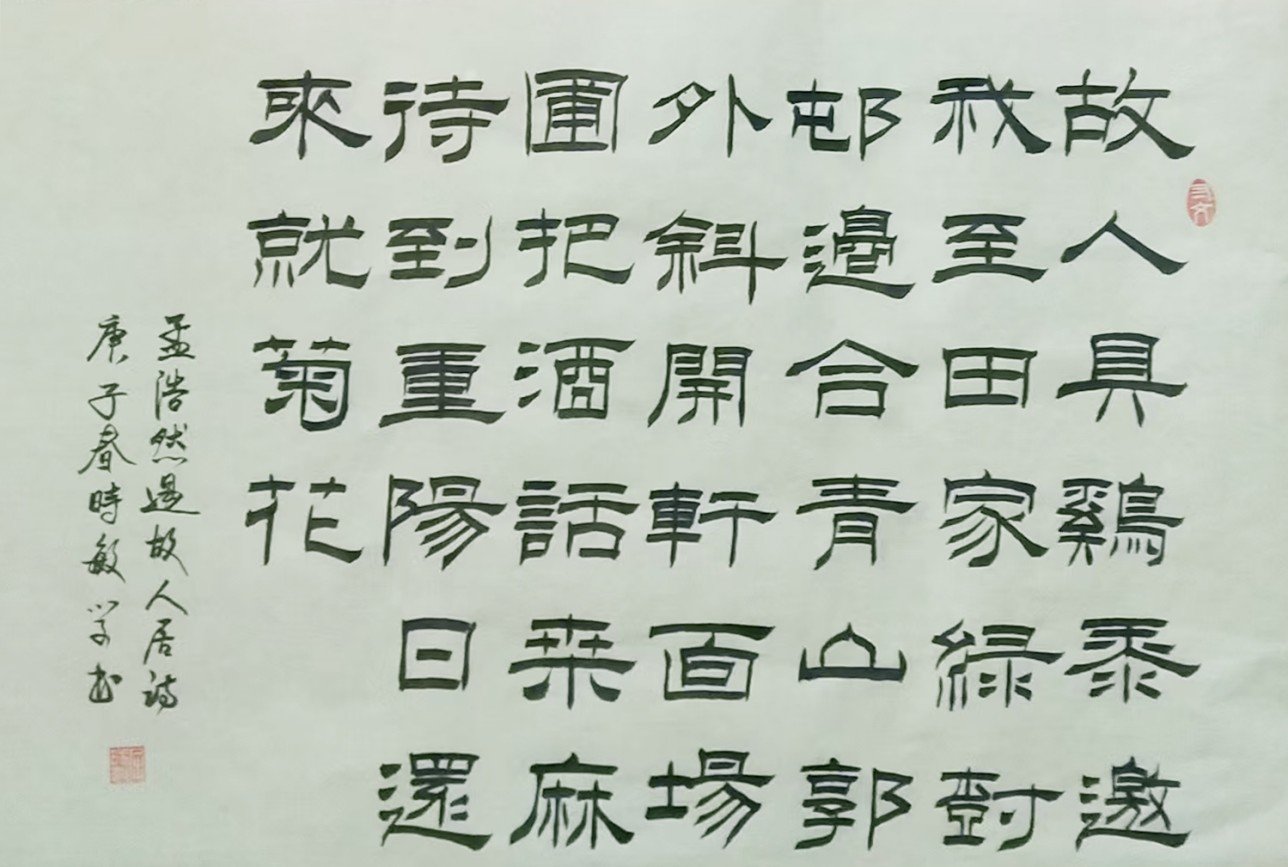 故人具鷄黍邀
我至田家緑尌
邨邊合青山郭
外斜開軒面場
圃把酒話桒麻
待到重陽日還
來就菊花
孟浩然過故人居詩
庚子春時敏學書